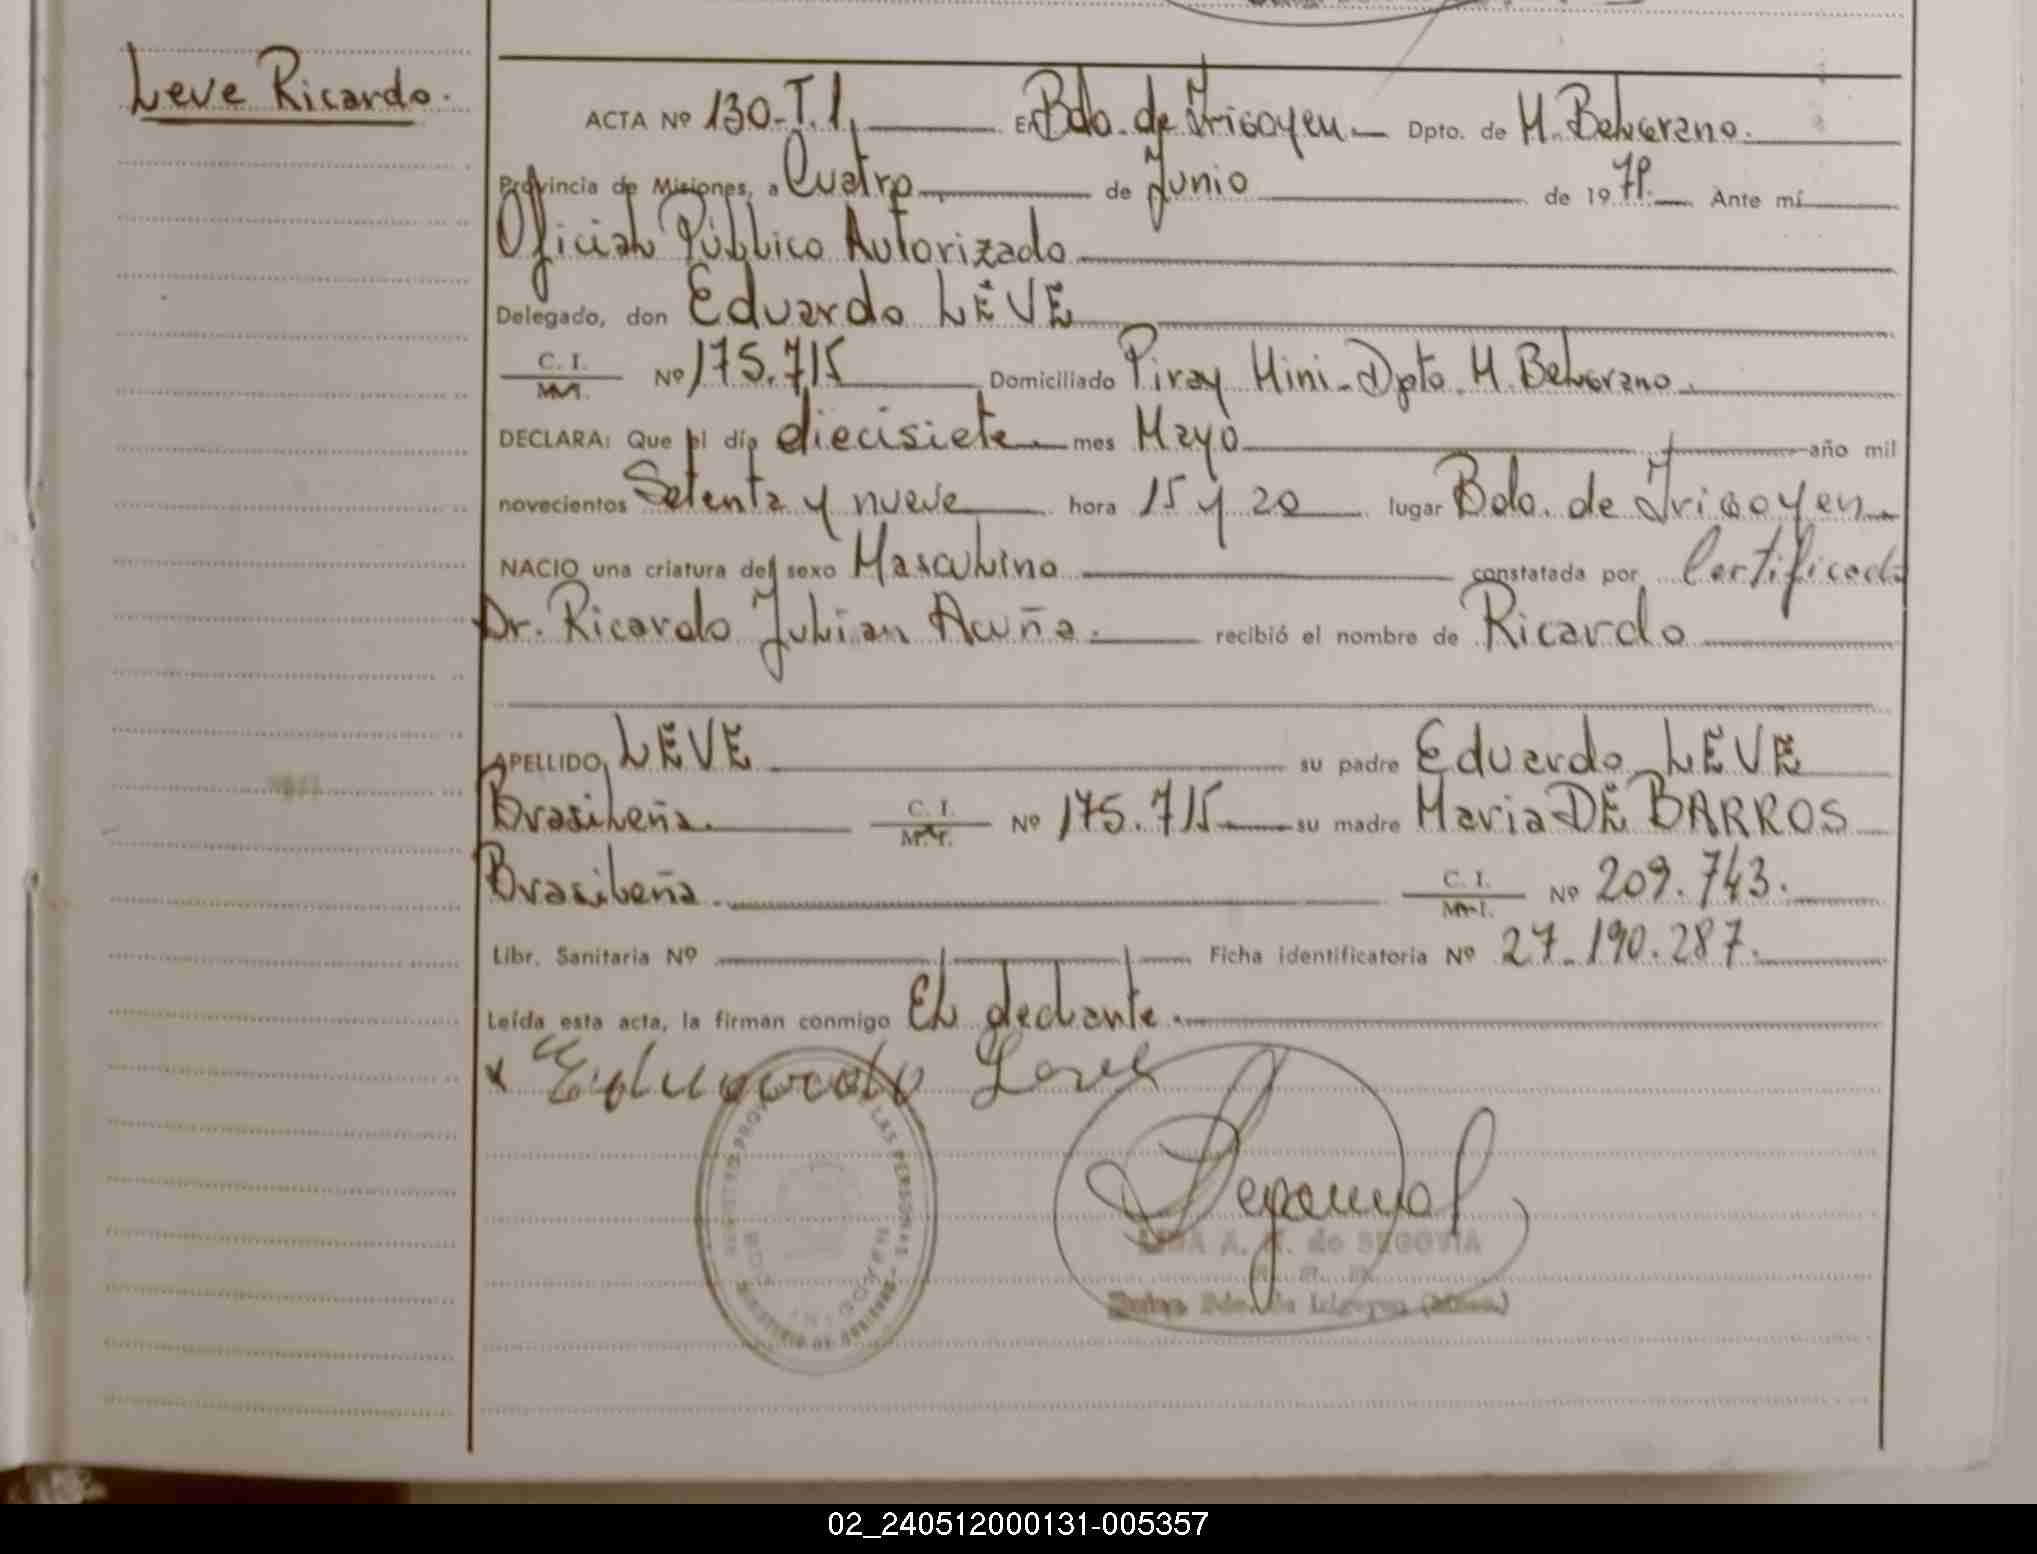 Leve Ricardo.
ACTA Nº 130-T.1. En Bdo. de Irigoyen Dpto. de M. Belgrano.
Provincia de Misiones, a Cuatro de Junio de 1979. Ante mí
Oficial Público Autorizado
Delegado, don Eduardo LEVE
C. I. Nº 175.715 Domiciliado Piray Mini-Dpto. M. Belgrano.
M.I.
DECLARA: Que el día diecisiete mes Mayo año mil
novecientos Setenta y nueve hora 15 y 20 lugar Bdo. de Irigoyen
NACIO una criatura del sexo Masculino constatada por Certificado
Dr. Ricardo Julian Acuña. recibió el nombre de Ricardo
APELLIDO LEVE su padre Eduardo LEVE
Brasileña. C. I. Nº 175.715 su madre Maria DE BARROS
M.I.
Brasileña. C. I. Nº 209.743.
M.I.
Libr. Sanitaria Nº Ficha identificatoria Nº 27.190.287.
Leída esta acta, la firman conmigo El declante.
x Eduardo Leve
LAS PERSONAS
A. de SEGOVIA
Bdo. de Irigoyen (Mnes.)
02_240512000131-005357